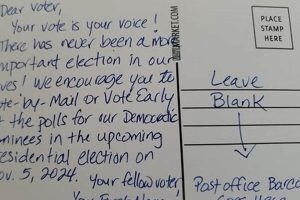 Dear Voter,
Your vote is your voice!
There has never been a more
important election in our
ves! We encourage you to
te-by-Mail or Vote Early
t the polls for our Democratic
minees in the upcoming
residential election on
ov. 5, 2024.
Your fellow voter,
PLACE
STAMP
HERE
Leave
Blank
Post office Barco